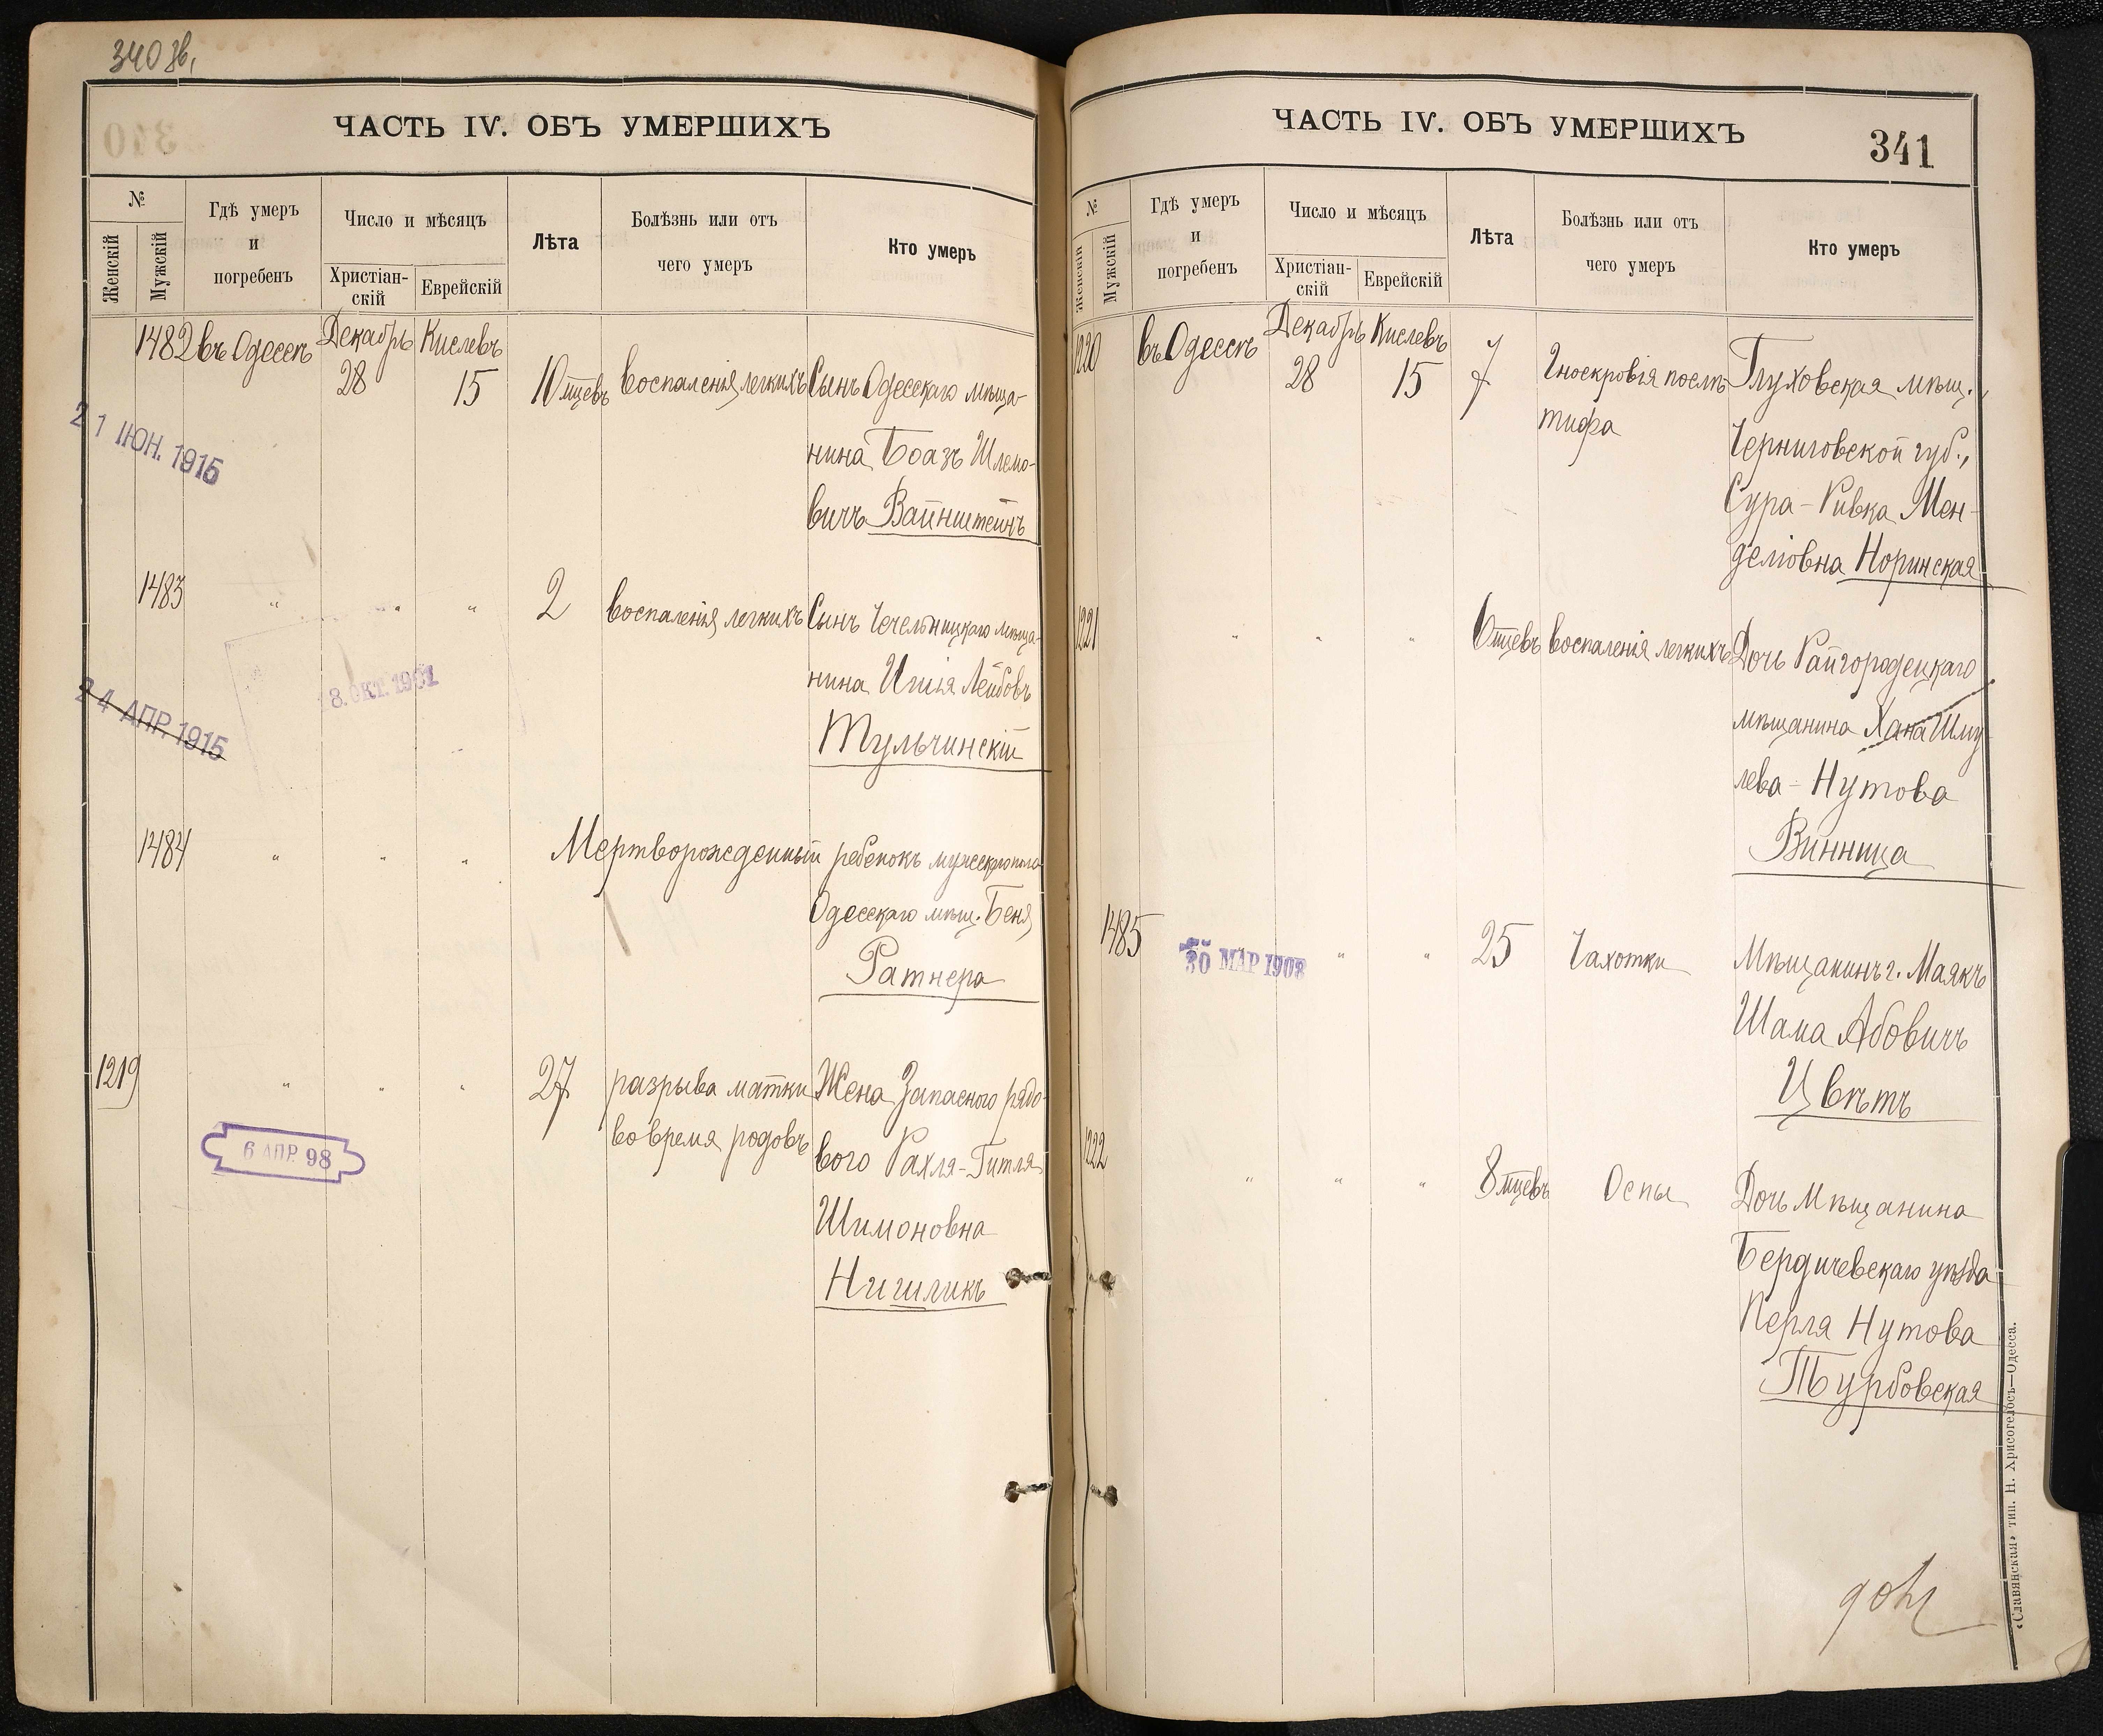 340 зв.
ЧАСТЬ IV. ОБЪ УМЕРШИХЪ
№
Женскій
Мужскій
Гдѣ умеръ
и
погребенъ
Число и мѣсяцъ
Христіан-
скій
Еврейскій
Лѣта
Болѣзнь или отъ
чего умеръ
Кто умеръ
1482 въ Одессѣ Декабрь Кислевъ
28 15 10 мцевъ воспаленія легкихъ Сынъ Одесскаго мѣща-
нина Боазъ Шлемо-
вичъ Вайнштейнъ
21 ІЮН. 1915
1483 " " " 2 воспаленія легкихъ Сынъ Чечельницкаго мѣща-
нина Лейбовъ
Тульчинскій
8. ОКТ. 1901
24 АПР. 1915
1484 " " " Мертворожденный ребенокъ мужескаго пола
Одесскаго мѣщ. Беня
Ратнера
1219 " " " 27 разрыва матки Жена Запасного рядо-
во время родовъ вого Рахля-Гитля
Шимоновна
Нишликъ
6 АПР. 98
ЧАСТЬ IV. ОБЪ УМЕРШИХЪ
341
№
Женскій
Мужскій
Гдѣ умеръ
и
погребенъ
Число и мѣсяцъ
Христіан-
скій
Еврейскій
Лѣта
Болѣзнь или отъ
чего умеръ
Кто умеръ
1220 въ Одессѣ Декабрь Кислевъ
28 15 7 Гноекровія послѣ Глуховская мѣщ.,
тифа Черниговской губ.,
Сура-Ривка Мен-
деліовна Норинская
1221 " " " 6 мцевъ воспаленія легкихъ Дочь Райгородецкаго
мѣщанина Хана Шму-
лева-Нутова
Винница
1485 " " 25 Чахотки Мѣщанинъ г. Маякъ
30 МАР 1908
Шама Абовичъ
Цвѣтъ
1222 " " " 8 мцевъ Оспы Дочь Мѣщанина
Бердичевскаго уѣзда
Перля Нутова
Турбовская
«Славянская» тип. Н. Хрисогелосъ—Одесса.